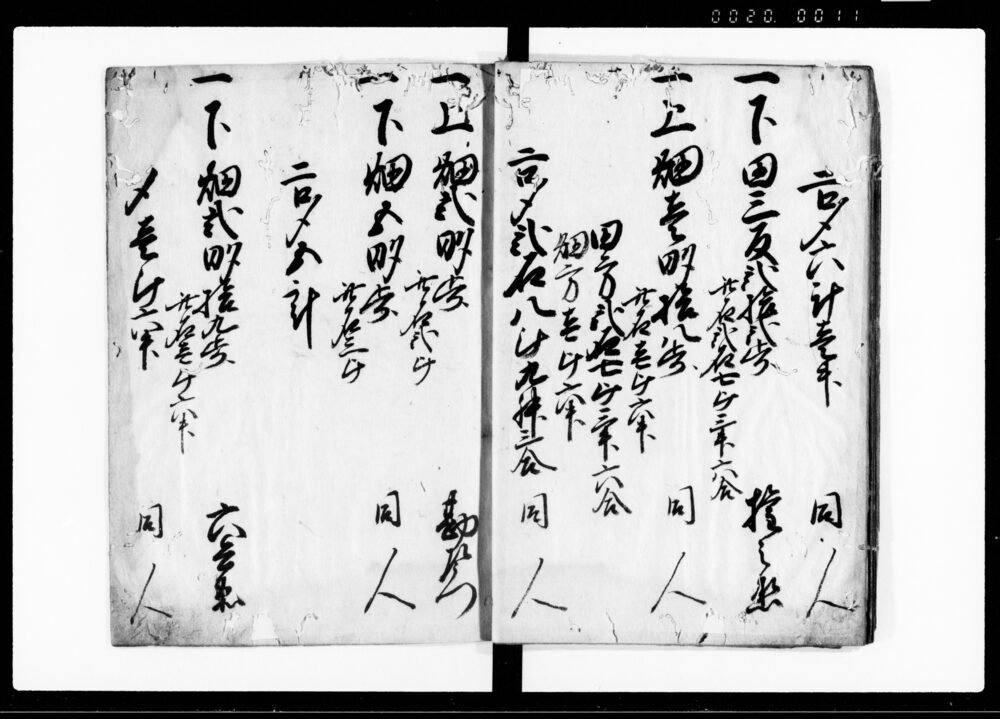 0020.0011
合〆六斗壱升 同人
一下田三反弐拾弐歩 権之丞
此石弐石七斗三升六合
一上畑壱畝拾八歩 同人
此石壱斗六升
田方弐石七斗三升六合
畑方壱斗六升
合〆弐石八斗九升三合 同人
一上畑弐畝歩 勘右衛門
此石弐斗
一下畑五畝歩 同人
此石三斗
合〆五斗
一下畑弐畝拾九歩 六兵衛
此石壱斗六升
〆壱斗六升 同人